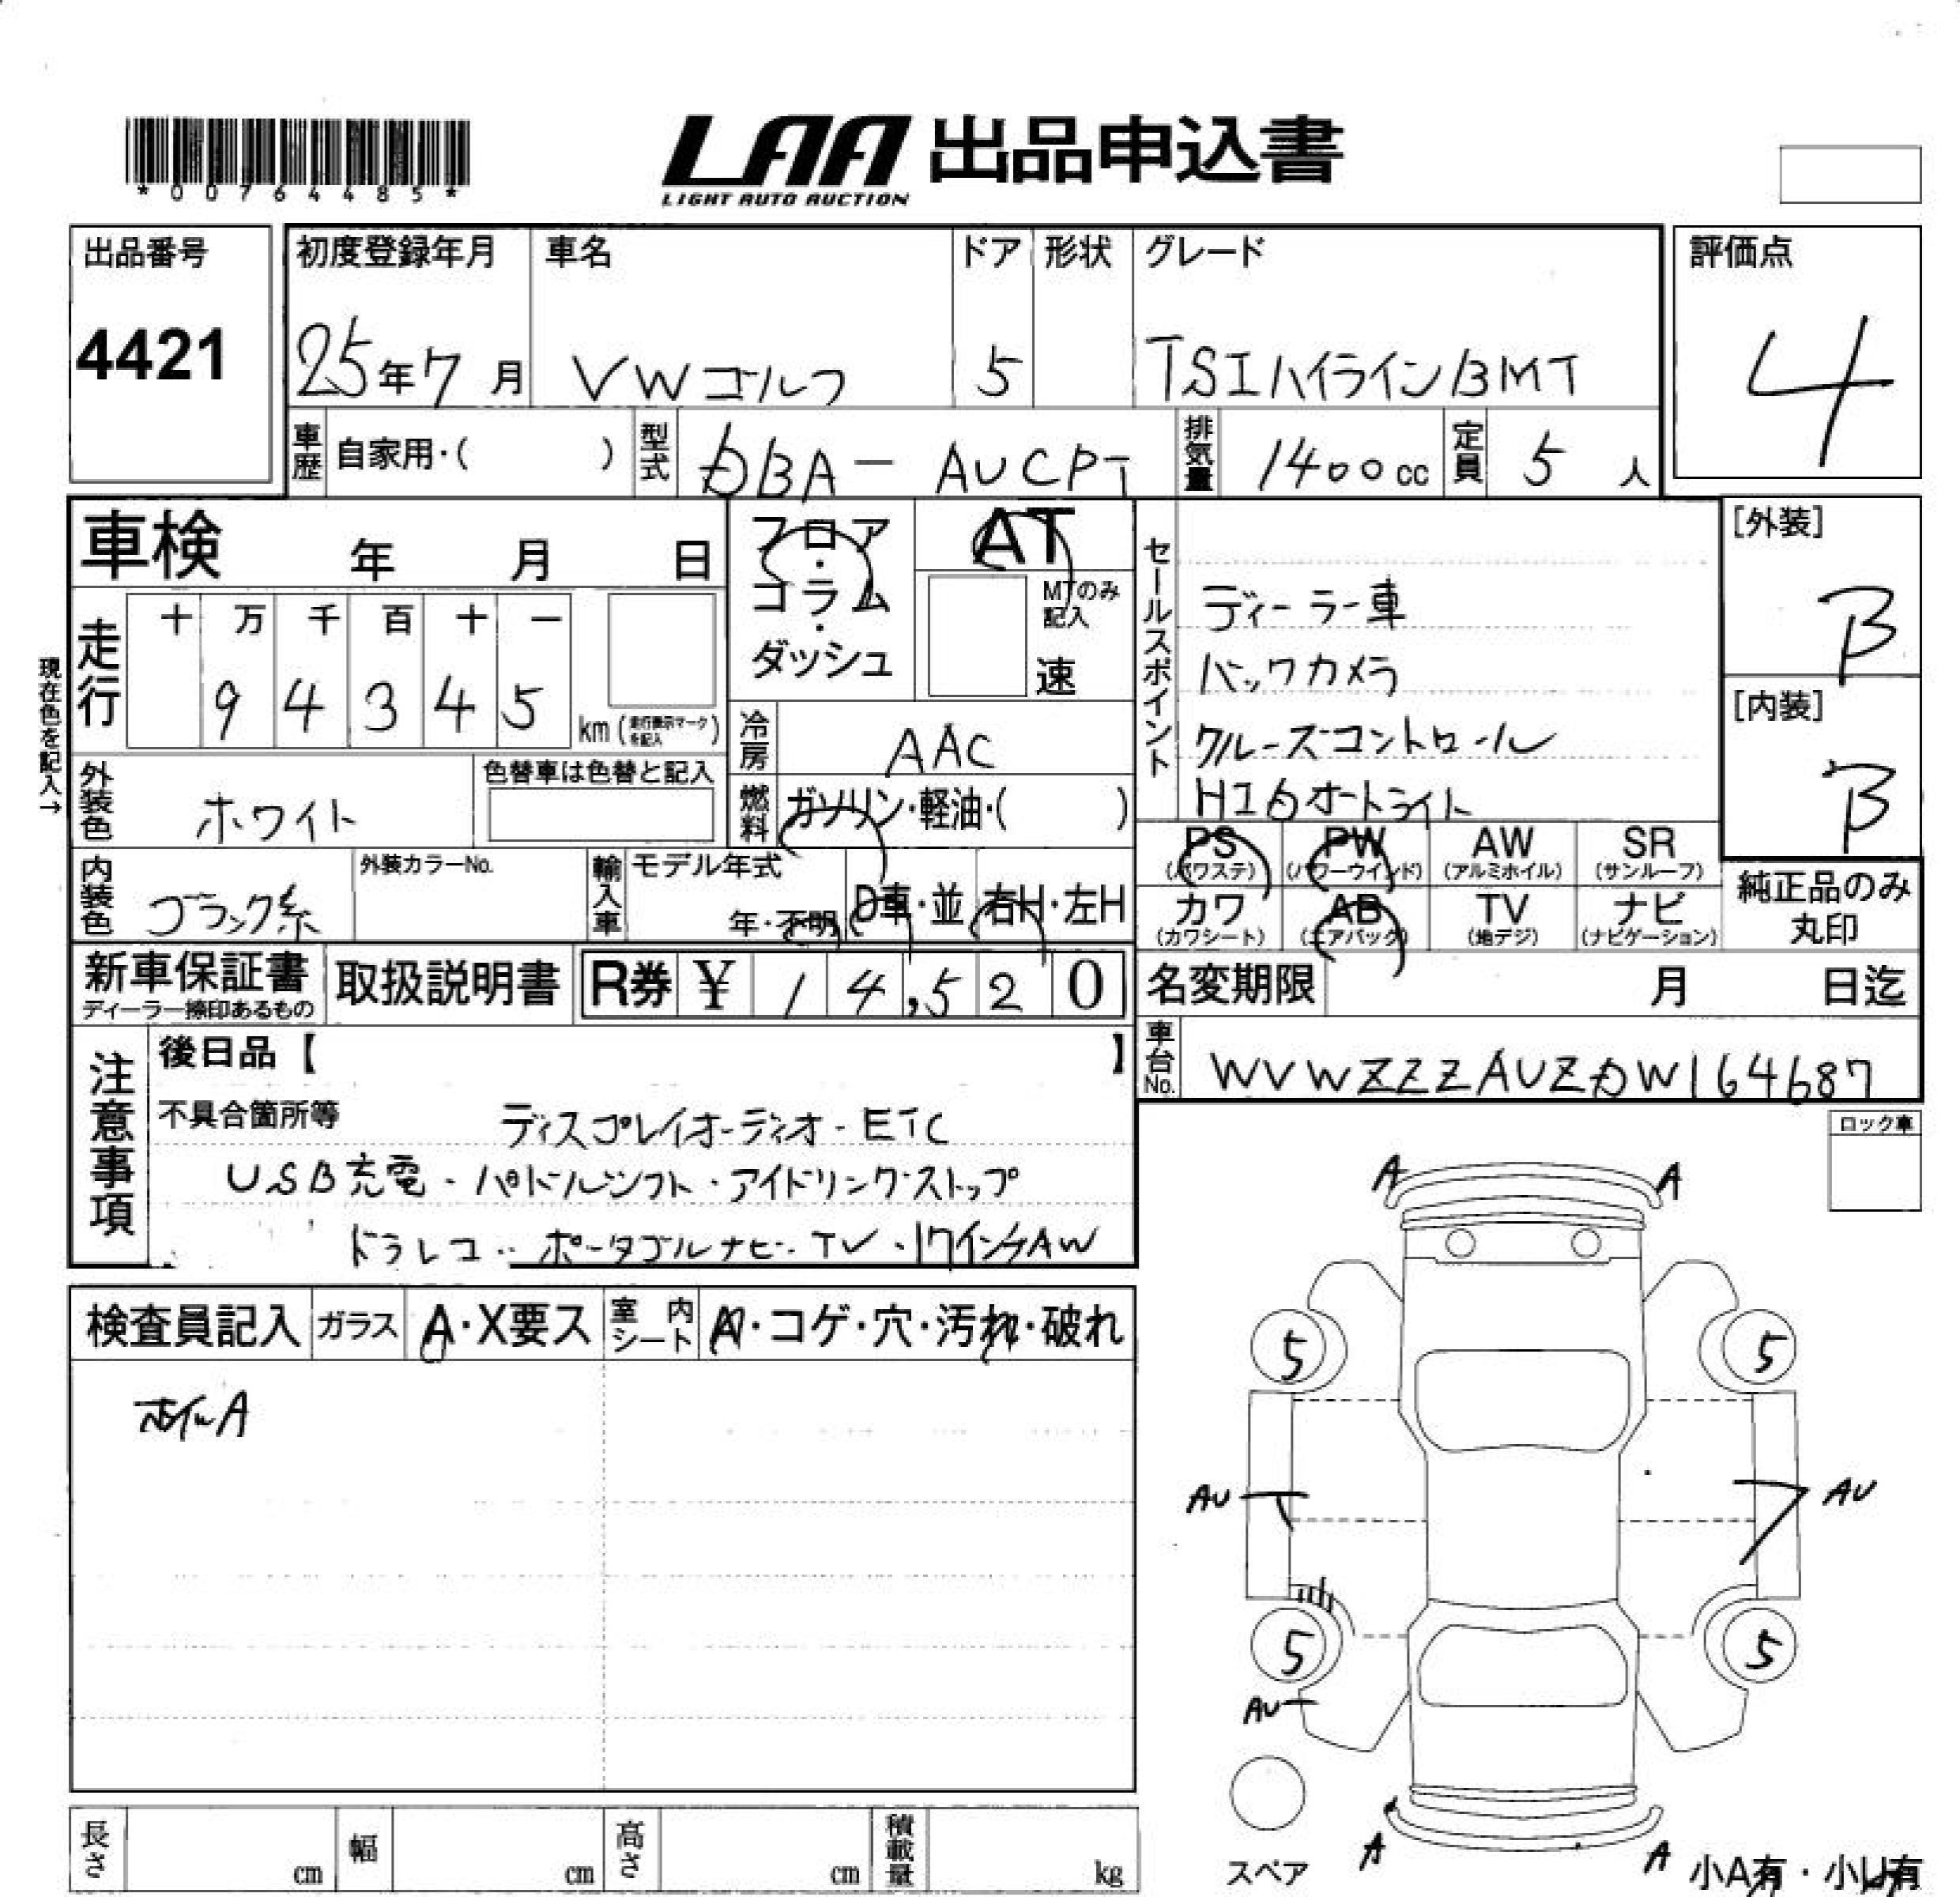 *00764485*
LAA 出品申込書
LIGHT AUTO AUCTION
出品番号
4421
初度登録年月
25年7月
車名
VWゴルフ
ドア
5
形状
グレード
TSIハイラインBMT
評価点
4
車歴 自家用・( )
型式 DBA-AUCPT
排気量 1400cc
定員 5人
車検 年 月 日
フロア・コラム・ダッシュ
AT
MTのみ記入
速
走行 十 万 千 百 十 一
9 4 3 4 5 km (走行表示マークを記入)
現在色を記入→
外装色 ホワイト
色替車は色替と記入
冷房 AAC
燃料 ガソリン・軽油・( )
内装色 ブラック系
外装カラーNo.
輸入車 モデル年式
年・不明
D車・並 右H・左H
セールスポイント
ディーラー車
バックカメラ
クルーズコントロール
HID オートライト
[外装]
B
[内装]
B
PS (パワステ) PW (パワーウインド) AW (アルミホイル) SR (サンルーフ)
カワ (カワシート) AB (エアバック) TV (地デジ) ナビ (ナビゲーション)
純正品のみ丸印
新車保証書
ディーラー捺印あるもの
取扱説明書
R券 ¥ 14,520
名変期限 月 日迄
車台No. WVWZZZAUZDW164687
注意事項
後日品【 】
不具合箇所等
ディスプレイオーディオ・ETC
USB充電・パドルシフト・アイドリングストップ
ドラレコ・ポータブルナビ・TV・17インチAW
ロック車
検査員記入 ガラス A・X要ス 室内シート A・コゲ・穴・汚れ・破れ
ホイルA
A A
5 5
AU AU
5 5
AU
スペア
A A
小A有・小U有
長さ cm 幅 cm 高さ cm 積載量 kg